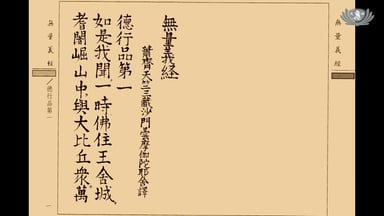 無量義經
無量義経
蕭齊天竺三藏沙門曇摩伽陀耶舍譯
德行品第一
如是我聞一時佛住王舍城
耆闍崛山中與大比丘眾萬
無量義經
德行品第一
一